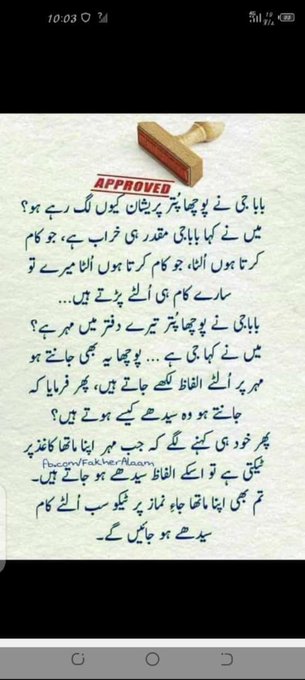 10:03
APPROVED
بابا جی نے پوچھا پُتر پریشان کیوں لگ رہے ہو؟
میں نے کہا باباجی مقدر ہی خراب ہے، جو کام
کرتا ہوں اُلٹا، جو کام کرتا ہوں اُلٹا میرے تو
سارے کام ہی اُلٹے پڑتے ہیں...
باباجی نے پوچھا پُتر تیرے دفتر میں مہر ہے؟
میں نے کہا جی ہے ... پوچھا یہ بھی جانتے ہو
مہر پر اُلٹے الفاظ لکھے جاتے ہیں، پھر فرمایا کہ
جانتے ہو وہ سیدھے کیسے ہوتے ہیں؟
پھر خود ہی کہنے لگے کہ جب مہر اپنا ماتھا کاغذ پر
fb.com/FakherAlaam
ٹیکتی ہے تو اسکے الفاظ سیدھے ہو جاتے ہیں۔
تم بھی اپنا ماتھا جاءِ نماز پر ٹیکو سب اُلٹے کام
سیدھے ہو جائیں گے۔